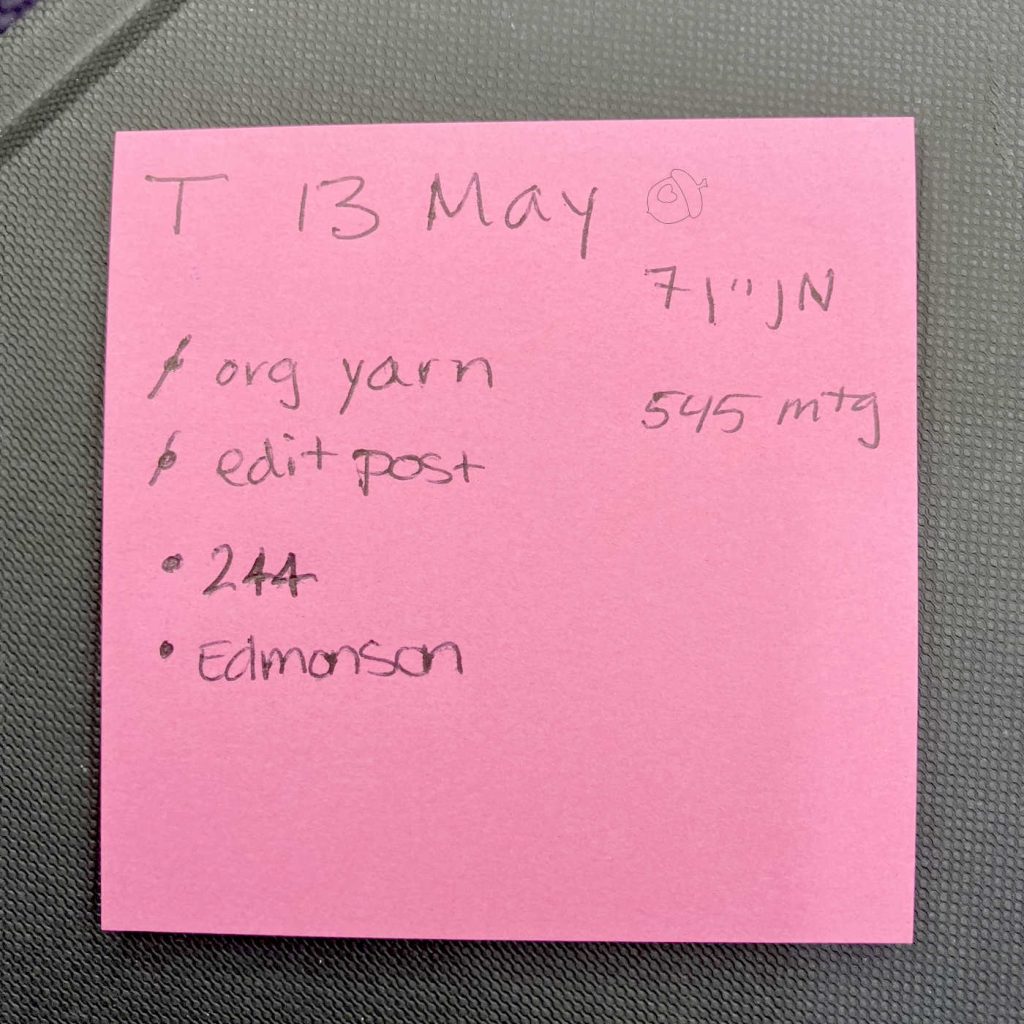 T 13 May
71" JN
org yarn
545 mtg
edit post
244
Edmonson